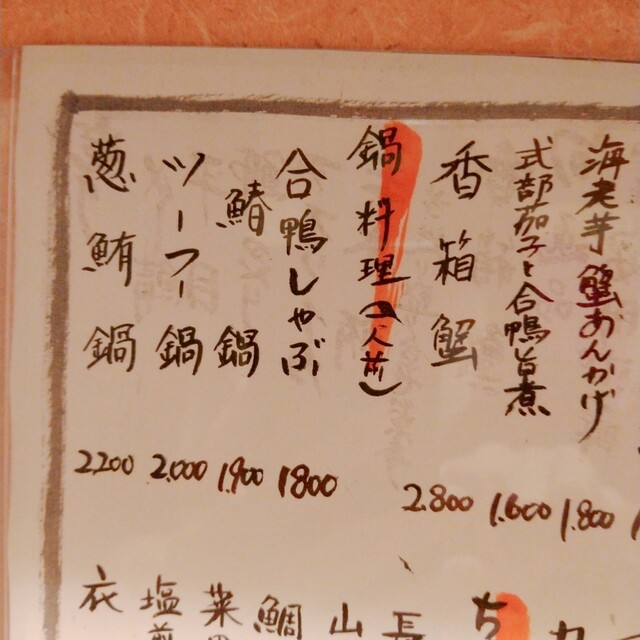 海老芋蟹あんかけ 1.800
式部茄子と合鴨旨煮 1.600
香箱蟹 2.800
鍋料理(一人前)
合鴨しゃぶ 1800
鰆鍋 1.900
ツーフー鍋 2.000
葱鮪鍋 2200
ち
長
山
鯛
菜
塩
衣